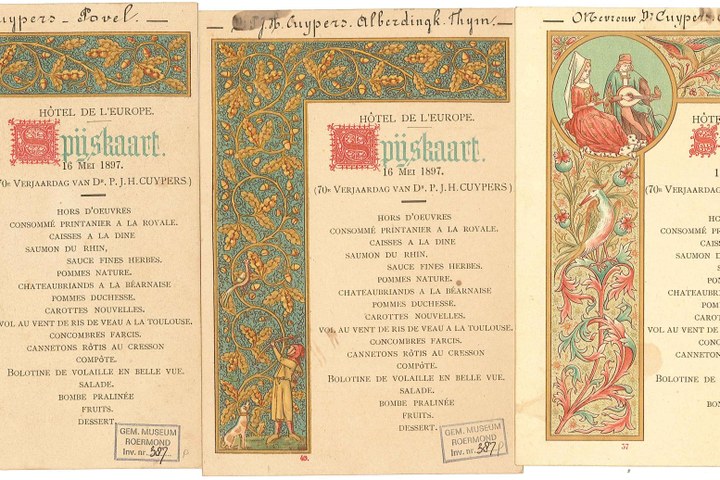 uypers - Povel.
HÔTEL DE L'EUROPE.
Spijskaart.
16 MEI 1897.
70e VERJAARDAG VAN Dr. P. J. H. CUYPERS)
HORS D'OEUVRES
CONSOMMÉ PRINTANIER A LA ROYALE.
CAISSES A LA DINE
SAUMON DU RHIN,
SAUCE FINES HERBES.
POMMES NATURE.
CHATEAUBRIANDS A LA BÉARNAISE
POMMES DUCHESSE.
CAROTTES NOUVELLES.
VOL AU VENT DE RIS DE VEAU A LA TOULOUSE.
CONCOMBRES FARCIS.
CANNETONS RÔTIS AU CRESSON
COMPÔTE.
BOLOTINE DE VOLAILLE EN BELLE VUE.
SALADE.
BOMBE PRALINÉE
FRUITS.
DESSERT.
GEM. MUSEUM
ROERMOND
Inv. nr. 387 P
J. H. Cuypers. Alberdingk. Thym.
HÔTEL DE L'EUROPE.
Spijskaart.
16 MEI 1897.
(70e VERJAARDAG VAN Dr. P. J. H. CUYPERS)
HORS D'OEUVRES
CONSOMMÉ PRINTANIER A LA ROYALE.
CAISSES A LA DINE
SAUMON DU RHIN,
SAUCE FINES HERBES.
POMMES NATURE.
CHATEAUBRIANDS A LA BÉARNAISE
POMMES DUCHESSE.
CAROTTES NOUVELLES.
VOL AU VENT DE RIS DE VEAU A LA TOULOUSE.
CONCOMBRES FARCIS.
CANNETONS RÔTIS AU CRESSON
COMPÔTE.
BOLOTINE DE VOLAILLE EN BELLE VUE.
SALADE.
BOMBE PRALINÉE
FRUITS.
DESSERT.
GEM. MUSEUM
ROERMOND
Inv. nr. 387
49.
Mevrouw Dr Cuypers
HÔTE
S
1
(70e VERJAARDAG
HO
CONSOMMÉ PR
CAI
SAUMON D
S
PO
CHATEAUBRIAND
POM
CAROT
VOL AU VENT DE R
CONC
CANNETON
BOLOTINE DE
BOM
57